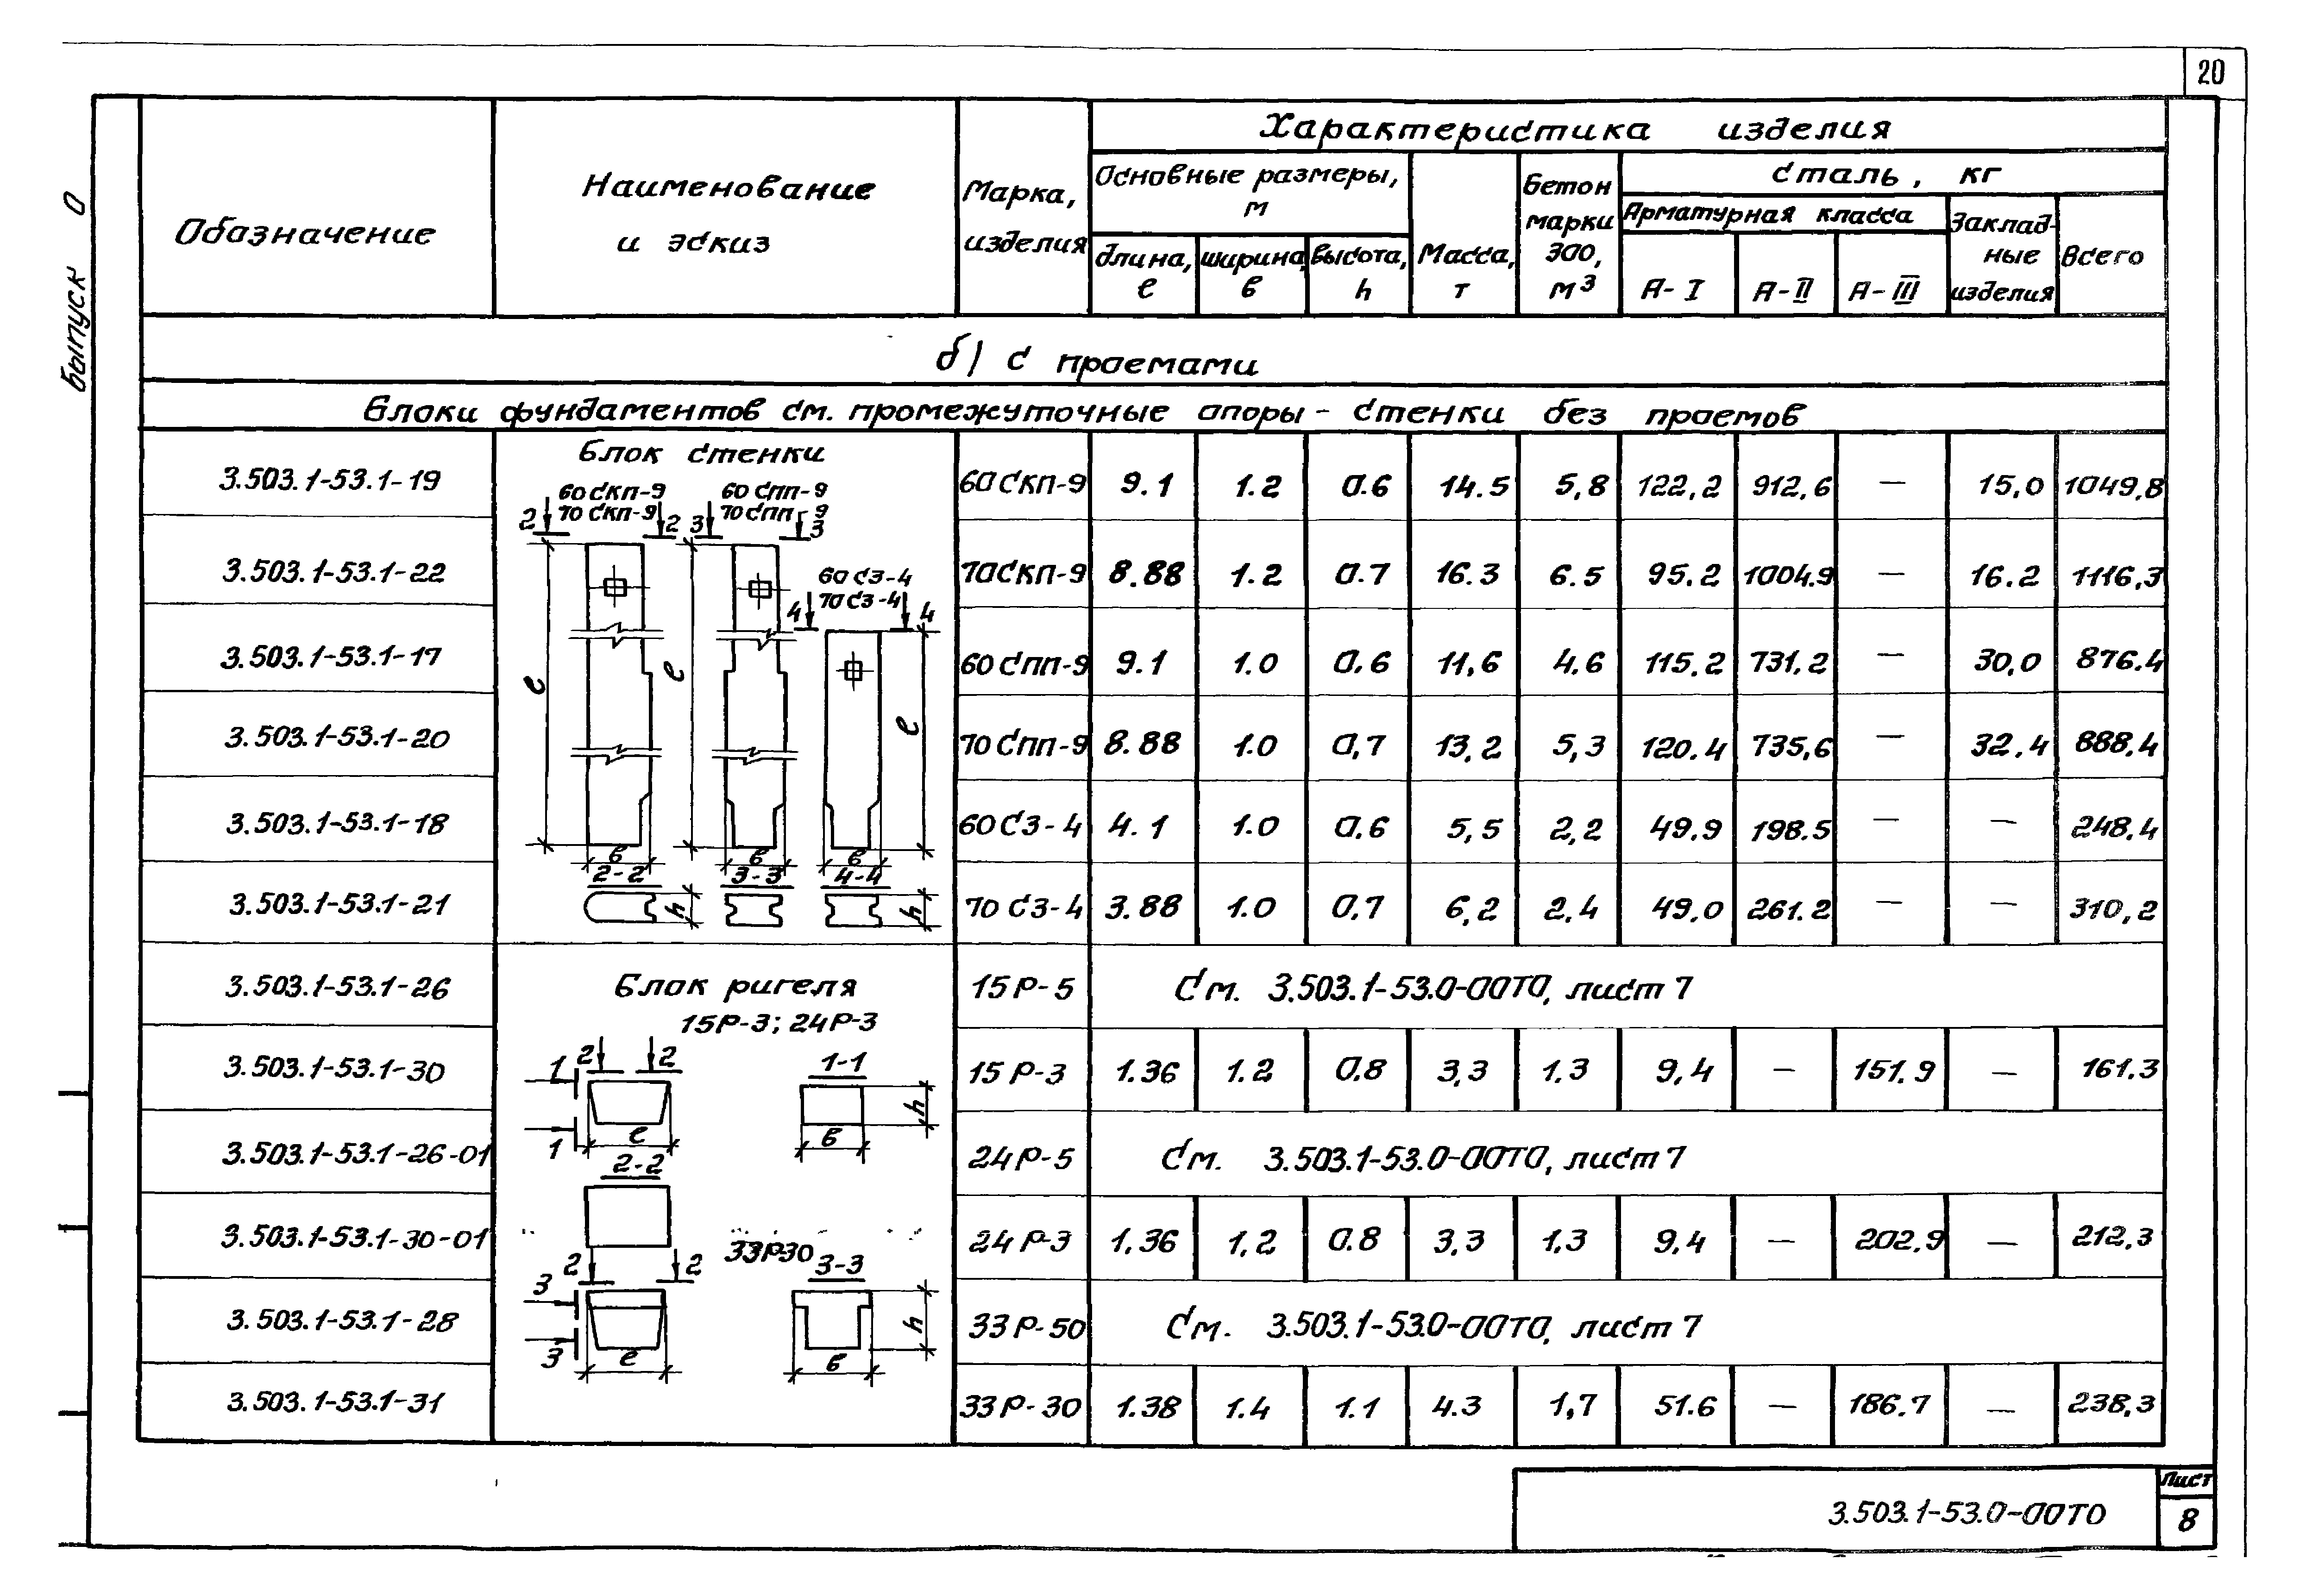 20
Выпуск 0
Обозначение
Наименование
и эскиз
Марка,
изделия
Характеристика изделия
Основные размеры,
м
длина,
ℓ
ширина,
в
высота,
h
Масса,
т
Бетон
марки
300,
м³
Сталь, кг
Арматурная класса
А-I
А-II
А-III
Заклад-
ные
изделия
Всего
б) с проемами
Блоки фундаментов см. промежуточные опоры - стенки без проемов
Блок стенки
60СКП-9 60СПП-9
70СКП-9 70СПП-9
2 2 3 3
60С3-4
70С3-4
4 4
ℓ ℓ ℓ
в в в
2-2 3-3 4-4
h h
3.503.1-53.1-19 60СКП-9 9.1 1.2 0.6 14.5 5,8 122,2 912,6 — 15,0 1049,8
3.503.1-53.1-22 70СКП-9 8.88 1.2 0.7 16.3 6.5 95.2 1004.9 — 16.2 1116,3
3.503.1-53.1-17 60СПП-9 9.1 1.0 0.6 11,6 4.6 115.2 731.2 — 30,0 876.4
3.503.1-53.1-20 70СПП-9 8.88 1.0 0,7 13,2 5,3 120.4 735,6 — 32.4 888.4
3.503.1-53.1-18 60С3-4 4.1 1.0 0.6 5,5 2,2 49.9 198.5 — — 248.4
3.503.1-53.1-21 70С3-4 3.88 1.0 0,7 6,2 2,4 49.0 261.2 — — 310,2
Блок ригеля
15Р-3; 24Р-3
1 2 2
1-1
h
1 ℓ в
2-2
2 2
33Р30
3-3
3
h
3 ℓ в
3.503.1-53.1-26 15Р-5 См. 3.503.1-53.0-00ТО, лист 7
3.503.1-53.1-30 15Р-3 1.36 1.2 0.8 3,3 1,3 9,4 — 151.9 — 161.3
3.503.1-53.1-26-01 24Р-5 См. 3.503.1-53.0-00ТО, лист 7
3.503.1-53.1-30-01 24Р-3 1,36 1,2 0.8 3,3 1,3 9,4 — 202.9 — 212,3
3.503.1-53.1-28 33Р-50 См. 3.503.1-53.0-00ТО, лист 7
3.503.1-53.1-31 33Р-30 1.38 1.4 1.1 4.3 1,7 51.6 — 186.7 — 238,3
3.503.1-53.0-00ТО
Лист
8